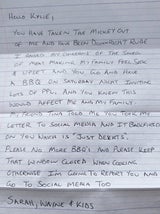 Hello Kylie,
You have taken the mickey out
of me and have been downright rude
I asked you because of the smell
of meat making my family feel sick
& upset and you go and have
a BBQ on Saturday night inviting
lots of ppl. And you knew this
would affect me and my family.
My friend Tina told me you took my
letter to social media and it backfired
on you which is "just deserts".
Please no more BBQ's and please keep
that window closed when cooking
otherwise I'm going to report you and
go to social media too
Sarah, Wayne & kids